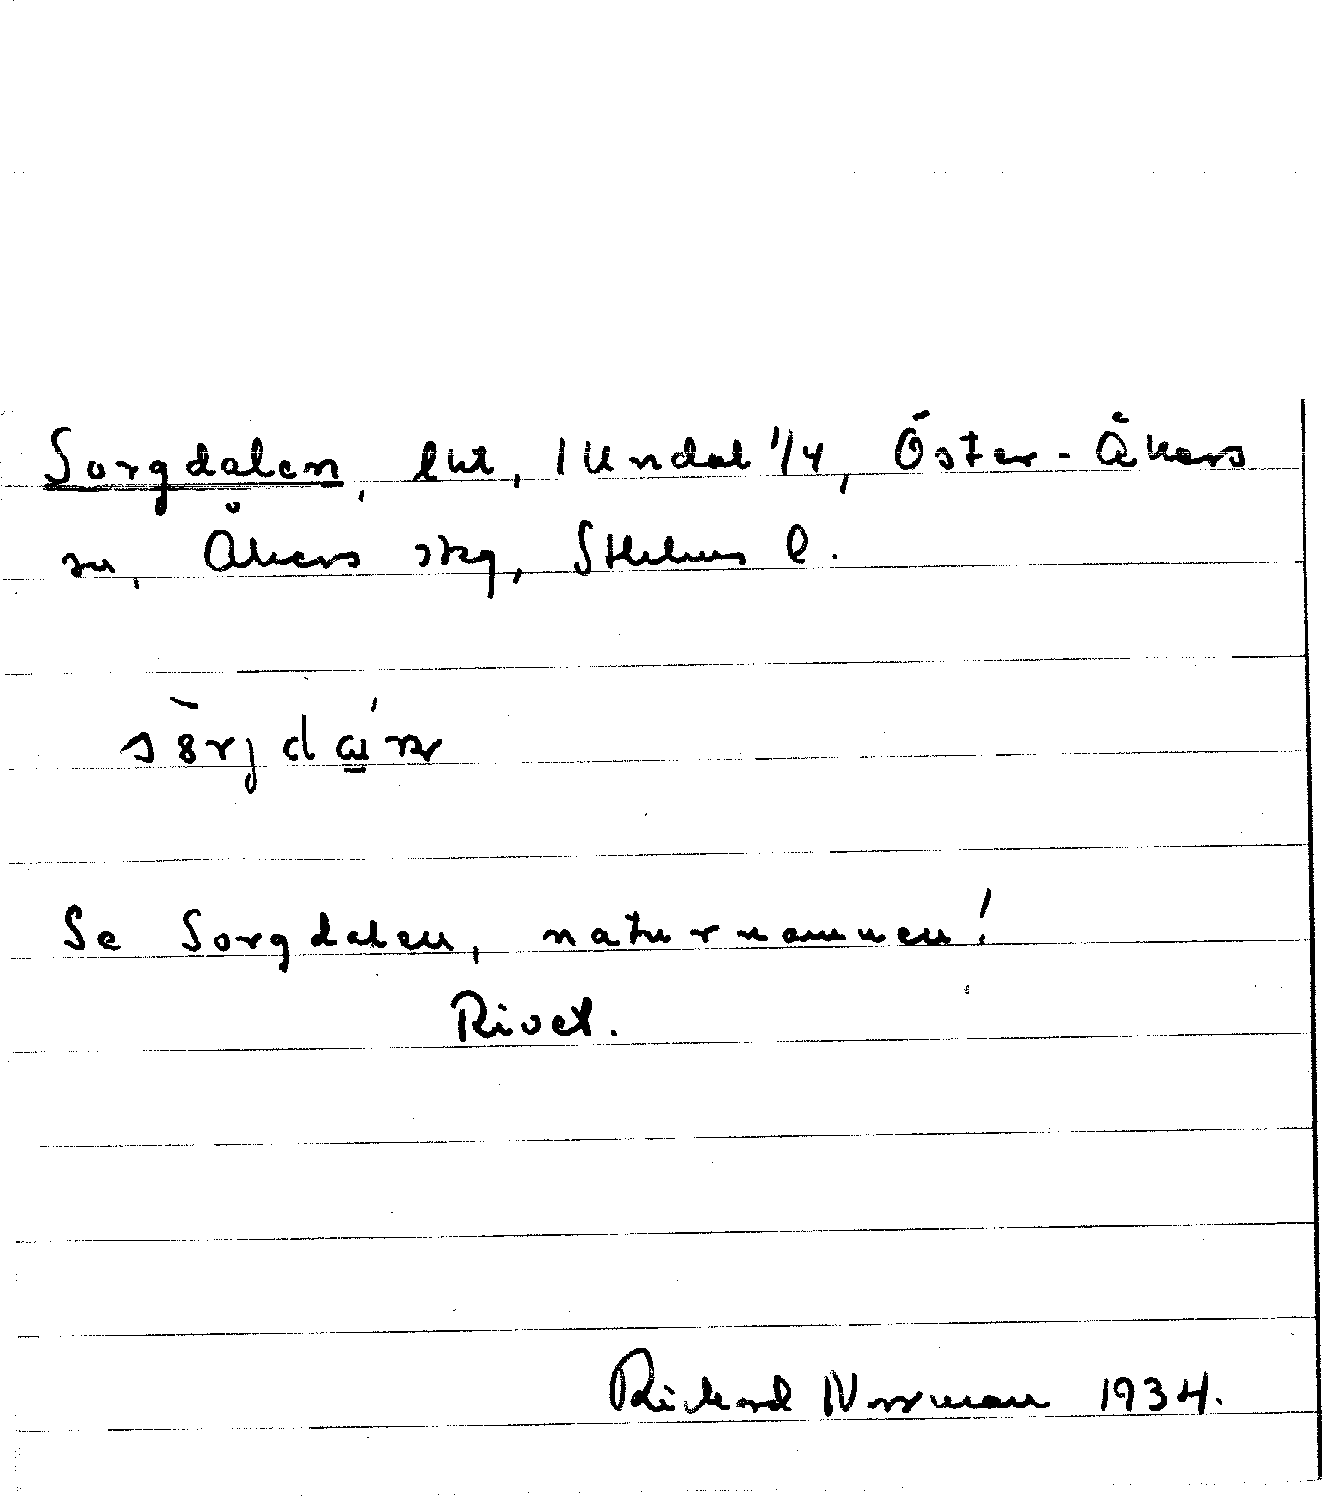 Sorgdalen, lht, 1 Undal 1/4, Öster-Åkers
sn, Åkers skg, Sthlms l.
Se Sorgdalen, naturnamnen!
Rivet.
Rickard Norrman 1934.